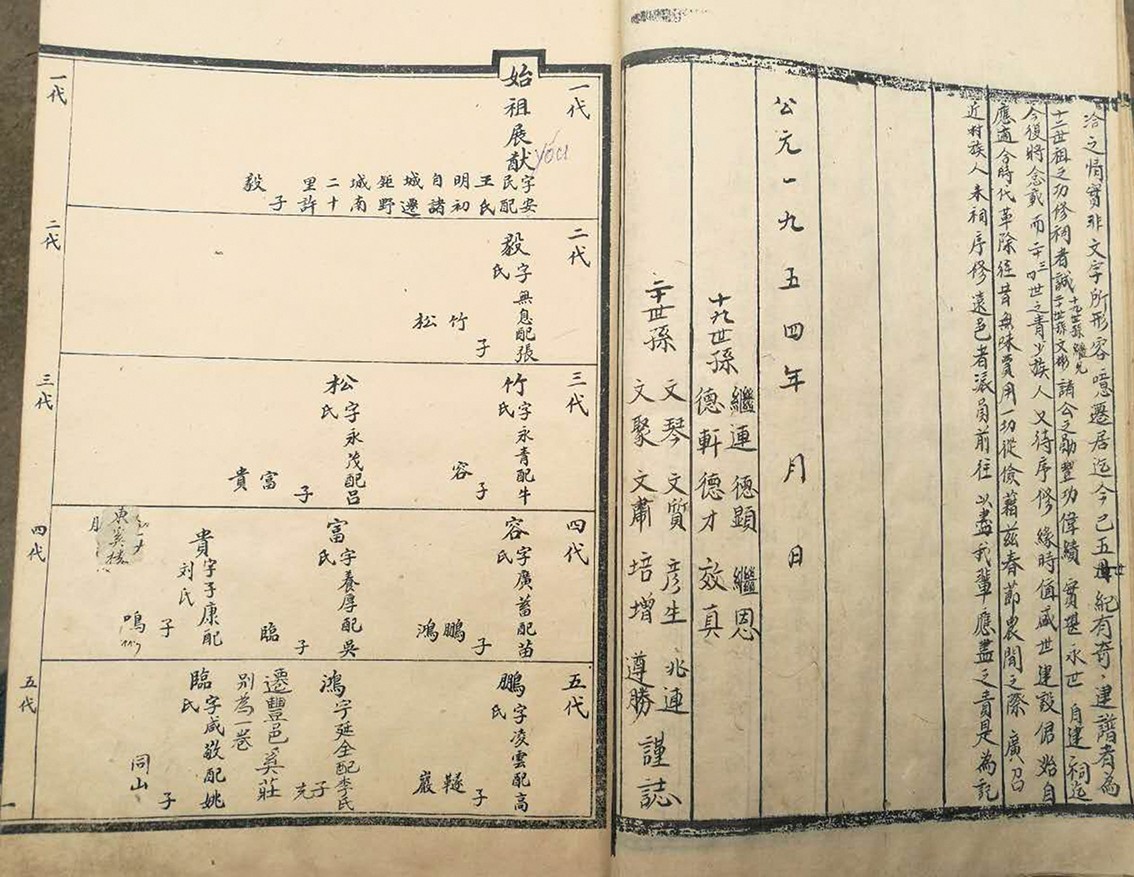 洽之情實非文字所形容噫遷居迄今已五世紀有奇建譜者為
十二世祖之功修祠者誠十九世孫繼先二十世孫文彬諸公之勛豐功偉績實堪永世自建祠迄
今復將念載而二十三四世之青少族人又待序修緣時值盛世建設伊始自
應適合時代革除往昔無味費用一切從儉藉茲春節農閒之際廣召
近村族人來祠序修遠邑者派員前往以盡我輩應盡之責是為記
公元一九五四年 月 日
十九世孫
繼連 德顯 繼恩
德軒 德才 效真
二十世孫
文琴 文質 彦生 兆連
文聚 文肅 培增 遵勝 謹誌
一代
始祖展猷
you
字安
民配
王氏
明初
自諸
城遷
鉅野
城南
二十
里許
子
毅
一代
二代
毅字無息配張
氏
子
竹
松
二代
三代
竹字永青配牛
氏
子
容
松字永茂配呂
氏
子
富
貴
三代
四代
容字廣蓄配苗
氏
子
鵬
鴻
富字養厚配吳
氏
子
臨
貴字子康配
刘氏
子
鳴
東奚楼
四代
五代
鵬字凌雲配高
氏
子
鐩
巖
鴻字延全配李氏
子
先
遷豐邑奚莊
別為一卷
臨字咸敬配姚
氏
子
同山
五代
一